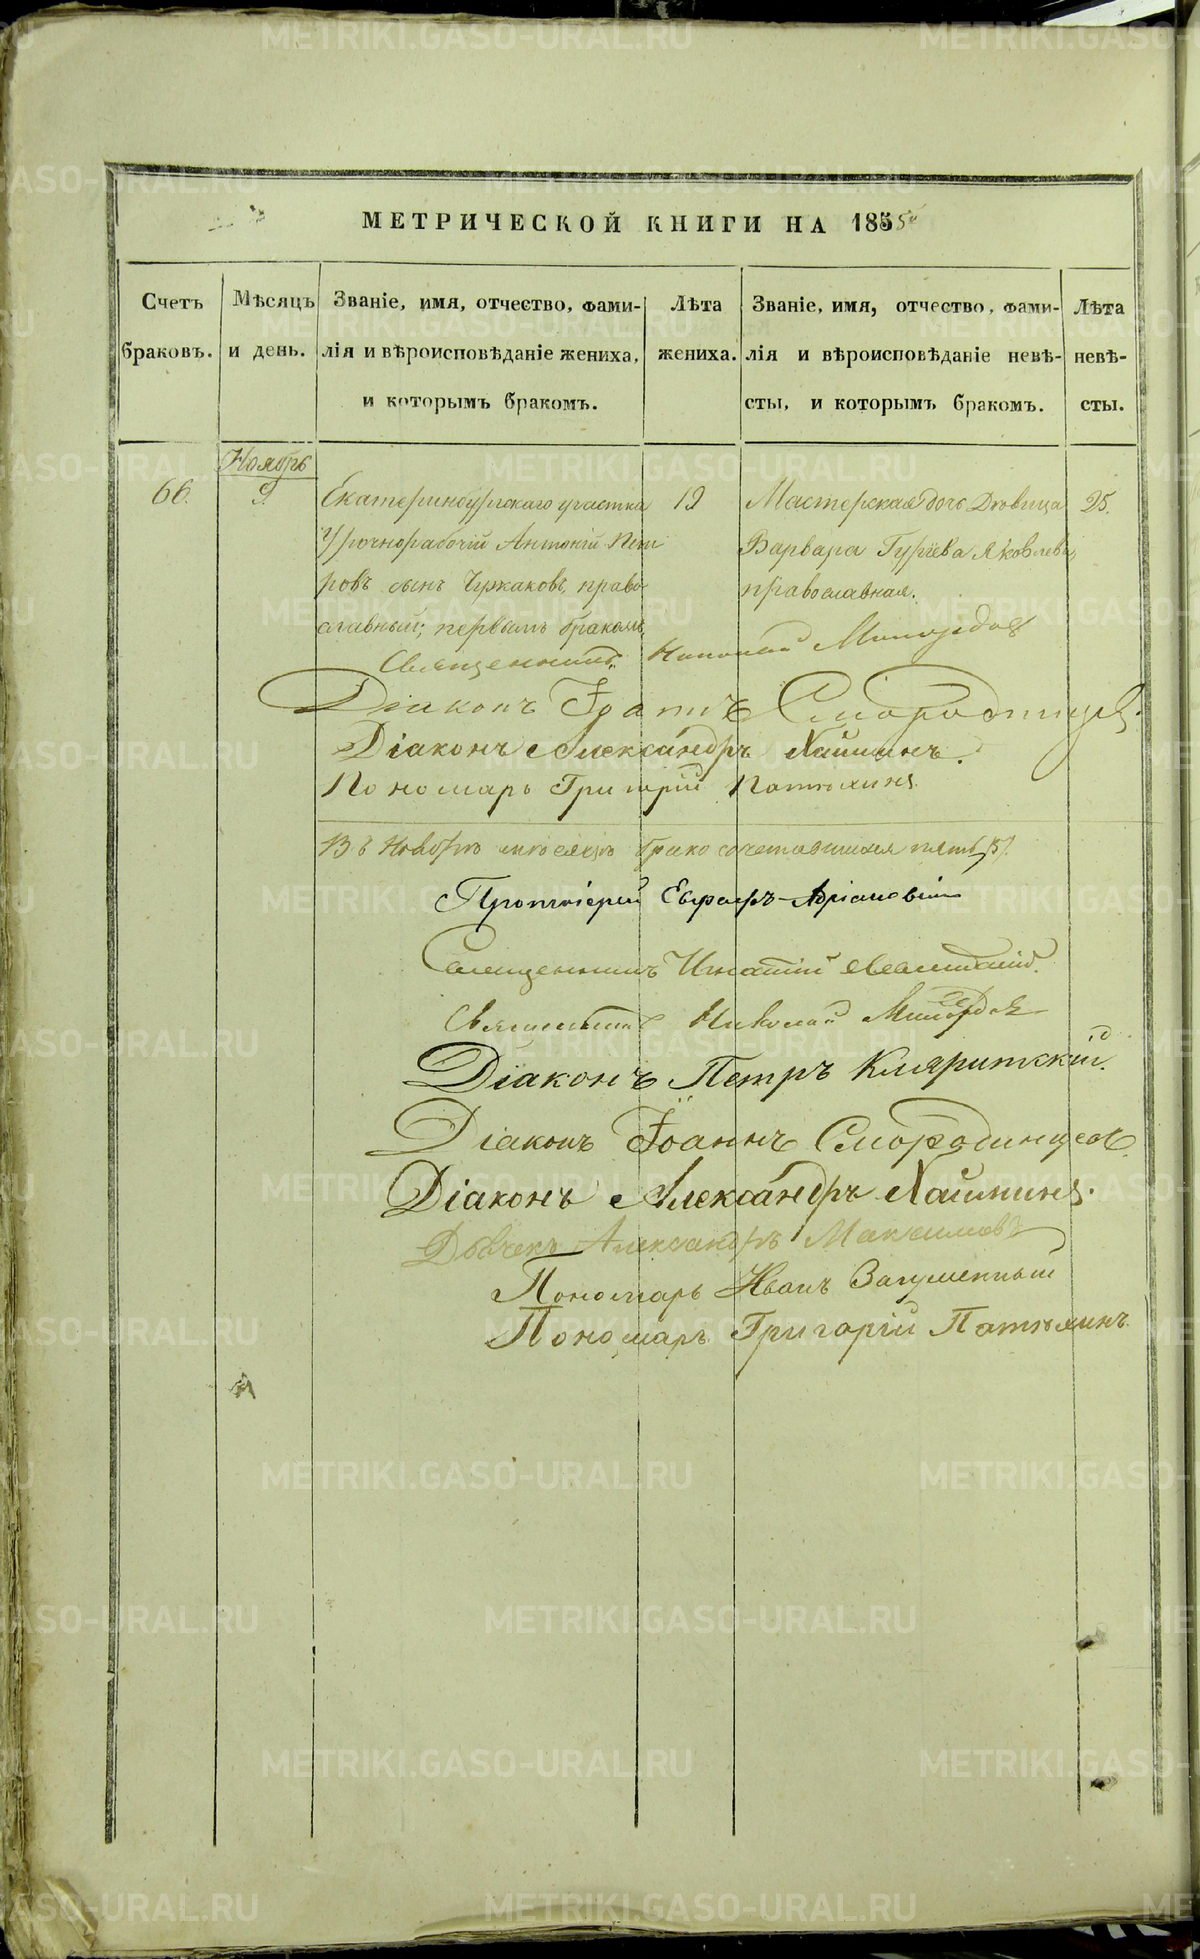 МЕТРИЧЕСКОЙ КНИГИ НА 1855й
Счетъ браковъ.
Мѣсяцъ и день.
Званіе, имя, отчество, фами-
лія и вѣроисповѣданіе жениха,
и которымъ бракомъ.
Лѣта
жениха.
Званіе, имя, отчество, фами-
лія и вѣроисповѣданіе невѣ-
сты, и которымъ бракомъ.
Лѣта
невѣ-
сты.
Ноябрь
66.
9.
Екатеринбургскаго участка
Урочнорабочій Антоній Пет
ровъ сынъ Чужаковъ, право
славный, первымъ бракомъ,
19
Мастерская дочь Дѣвица
Варвара Гуріева Яковлева,
православная.
25.
Священникъ Николай
Діаконъ Іоаннъ Смородинцевъ.
Діаконъ Александръ Хаймин.
Пономарь Григорій Патюхинъ
Въ Ноябрѣ мѣсяцѣ брако сочетавшихся пять /5/.
Протоіерей
Священникъ Игнатій
Священникъ Николай
Діаконъ Петръ Кляритскій.
Діаконъ Іоаннъ Смородинцевъ.
Діаконъ Александръ Хайминъ.
Дьячекъ Александръ Максимовъ
Пономарь Иванъ Загуменный
Пономарь Григорій Патюхинъ.
METRIKI.GASO-URAL.RU